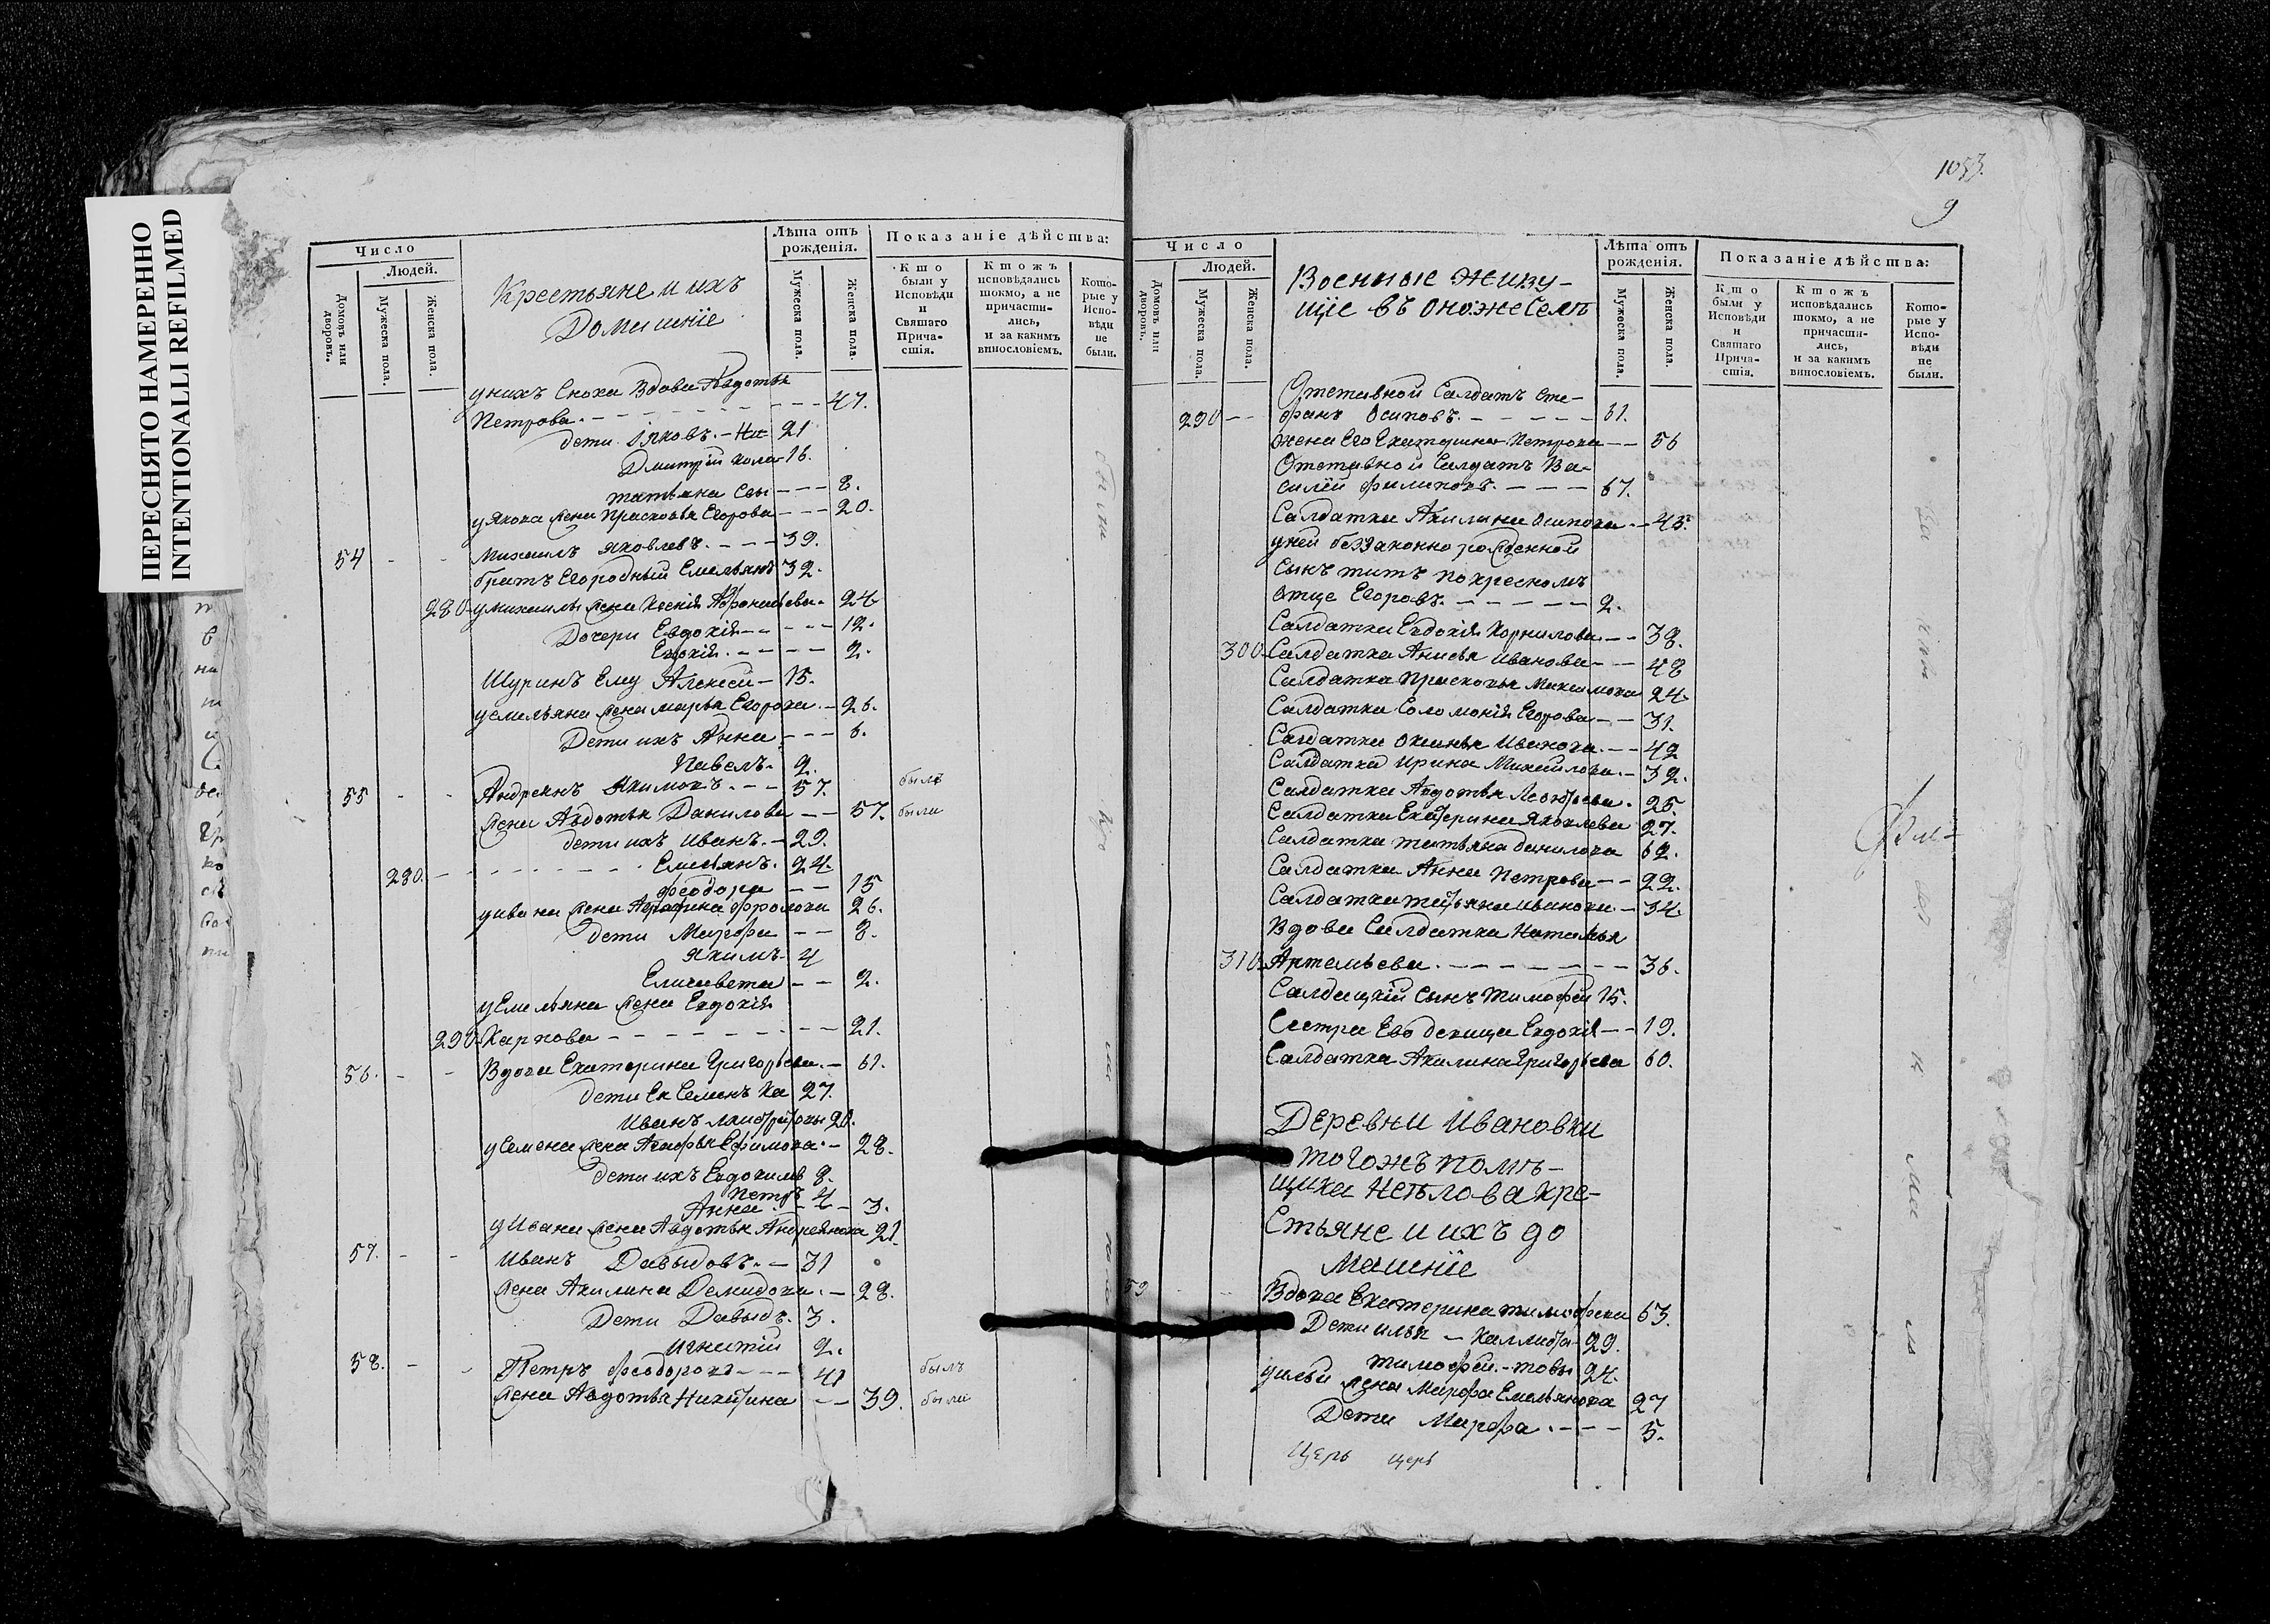 ПЕРЕСНЯТО НАМЕРЕННО
INTENTIONALLI REFILMED
Число
Людей.
Домовъ или дворовъ.
Мужеска пола.
Женска пола.
Крестьяне и ихъ
Домашнїе
Лѣта отъ рожденія.
Мужеска пола.
Женска пола.
Показаніе дѣйства:
Кто были у Исповѣди и Святаго Причастія.
Ктожъ исповѣдались токмо, а не причастились, и за какимъ винословіемъ.
Которые у Исповѣди не были.
у нихъ Сноха Вдова Авдотья
Петрова - - - 47.
дети Іяковъ - Ни- 21
Дмитрїй кола- 16.
татьяна евы - - - 8.
у Якова жена Прасковья Егорова - - - 20.
54 - - Михаилъ Яковлевъ. - - - 39.
братъ Егородный Емельянъ 32.
280 у михаилы жена Ксенїя Афонасьева - 24
Дочери Евдокїя - - - - 12.
Евдокїя. - - - - 2.
Шуринъ Ему Алексей - 15.
у емельяна жена марья Егорова. - 26.
Дети ихъ Анна - - - 6.
Павелъ. 2.
55 - - Андреянъ Якимовъ. - - 57. былъ
жена Авдотья Данилова - - 57. была
дети ихъ Иванъ. - 29.
230. - - - Емельянъ. 24
феодора - - 15
у ивана жена Аграфина фролова 26.
дети Марфа - - 8.
Якимъ - 4
Елисавета - - 2.
у Емельяна жена Евдокїя
290 Карпова - - - 21.
56. - - Вдова Екатерина Григорьева. - 61.
дети Ея Семенъ Ка 27.
Иванъ 20.
у Семена жена Агафья Ефимова. - 28.
дети ихъ Евдокимъ 8.
Петръ 4
Анна - - 3.
у Ивана жена Авдотья Андреянова 21.
57. - - Иванъ Давыдовъ. - 31
жена Акилина Демидова. - 28.
Дети Давыдъ. 3.
Игнатїй 2.
58. - - Петръ Феодоровъ - - - 41 былъ
жена Авдотья Никитина - - 39. была
1053.
9
Число
Людей.
Домовъ или дворовъ.
Мужеска пола.
Женска пола.
Военные живу-
щїе въ оножъ Селѣ
Лѣта отъ рожденія.
Мужеска пола.
Женска пола.
Показаніе дѣйства:
Кто были у Исповѣди и Святаго Причастія.
Ктожъ исповѣдались токмо, а не причастились, и за какимъ винословіемъ.
Которые у Исповѣди не были.
Отставной Салдатъ Сте-
290 - - фанъ Осиповъ. - - - - - 61.
жена Его Екатерина Петрова - - 56
Отставной Салдатъ Ва-
силїй филиповъ. - - - - 67.
Салдатка Акилина Осипова. - 43.
у ней беззаконно рожденной
Сынъ титъ по кресномъ
отце Егоровъ. - - - - - 2.
Салдатка Евдокїя Корнилова - - 38.
300 Салдатка Анисья Иванова - - 48
Салдатка Прасковья Максимова 24.
Салдатка Соломонїя Егорова - - 31.
Салдатка Оксинья Иванова. - - 42
Салдатка Ирина Михаилова. - 32.
Салдатка Авдотья Леонтьева. 25.
Салдатка Екатерина Яковлева 27.
Салдатка татьяна данилова 62.
Салдатка Анна Петрова - - 22.
Салдатка татьяна Иванова - 34.
Вдова Салдатка Наталья
310 Артемьева. - - - - - - - 36.
Салдацкїй Сынъ тимофей 15.
Сестра Ево девица Евдокїя - - 19.
Салдатка Акилина Григорьева 60.
Деревни Ивановки
тогожъ помѣ-
щика Неѣлова кре-
стьяне и ихъ до
машнїе
59 - - Вдова Екатерина тимофеева 63.
Дети илья - Каллист- 29.
тимофей. - товы 24.
у ильи жена Марфа Емельянова 27
Дети Марфа. - - - - 5.
Церь церь